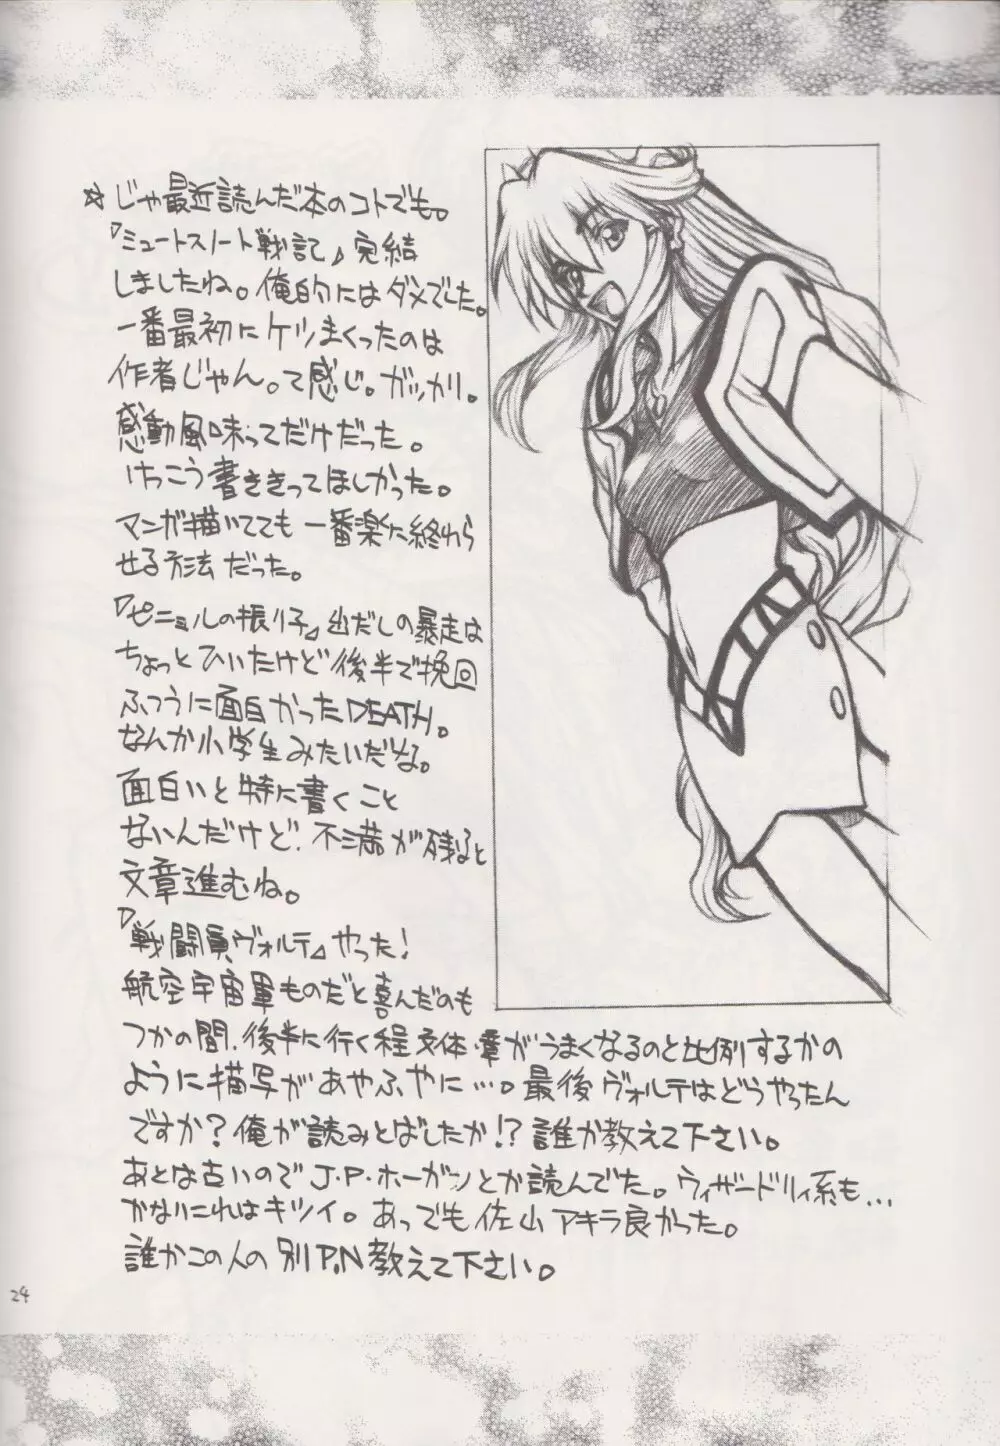 ☆じゃ最近読んだ本のコトでも。
『ミュートスノート戦記』完結
しましたね。俺的にはダメでした。
一番最初にケツまくったのは
作者じゃん。て感じ。ガッカリ。
感動風味ってだけだった。
けっこう書ききってほしかった。
マンガ描いてても一番楽な終わら
せる方法だった。
『ピニェルの振り子』出だしの暴走は
ちょっとひいたけど後半で挽回
ふつうに面白かったDEATH。
なんか小学生みたいだな。
面白いと特に書くこと
ないんだけど、不満が残ると
文章進むね。
『戦闘員ヴォルテ』やった！
航空宇宙軍ものだと喜んだのも
つかの間、後半に行く程文体・章がうまくなるのと比例するかの
ように描写があやふやに…。最後ヴォルテはどうやったん
ですか？俺が読みとばしたか!?誰か教えて下さい。
あとは古いのでJ・P・ホーガンとか読んでた。ウィザードリィ系も…
かないこれはキツイ。あっでも佐山アキラ良かった。
誰かこの人の別P.N教えて下さい。
24